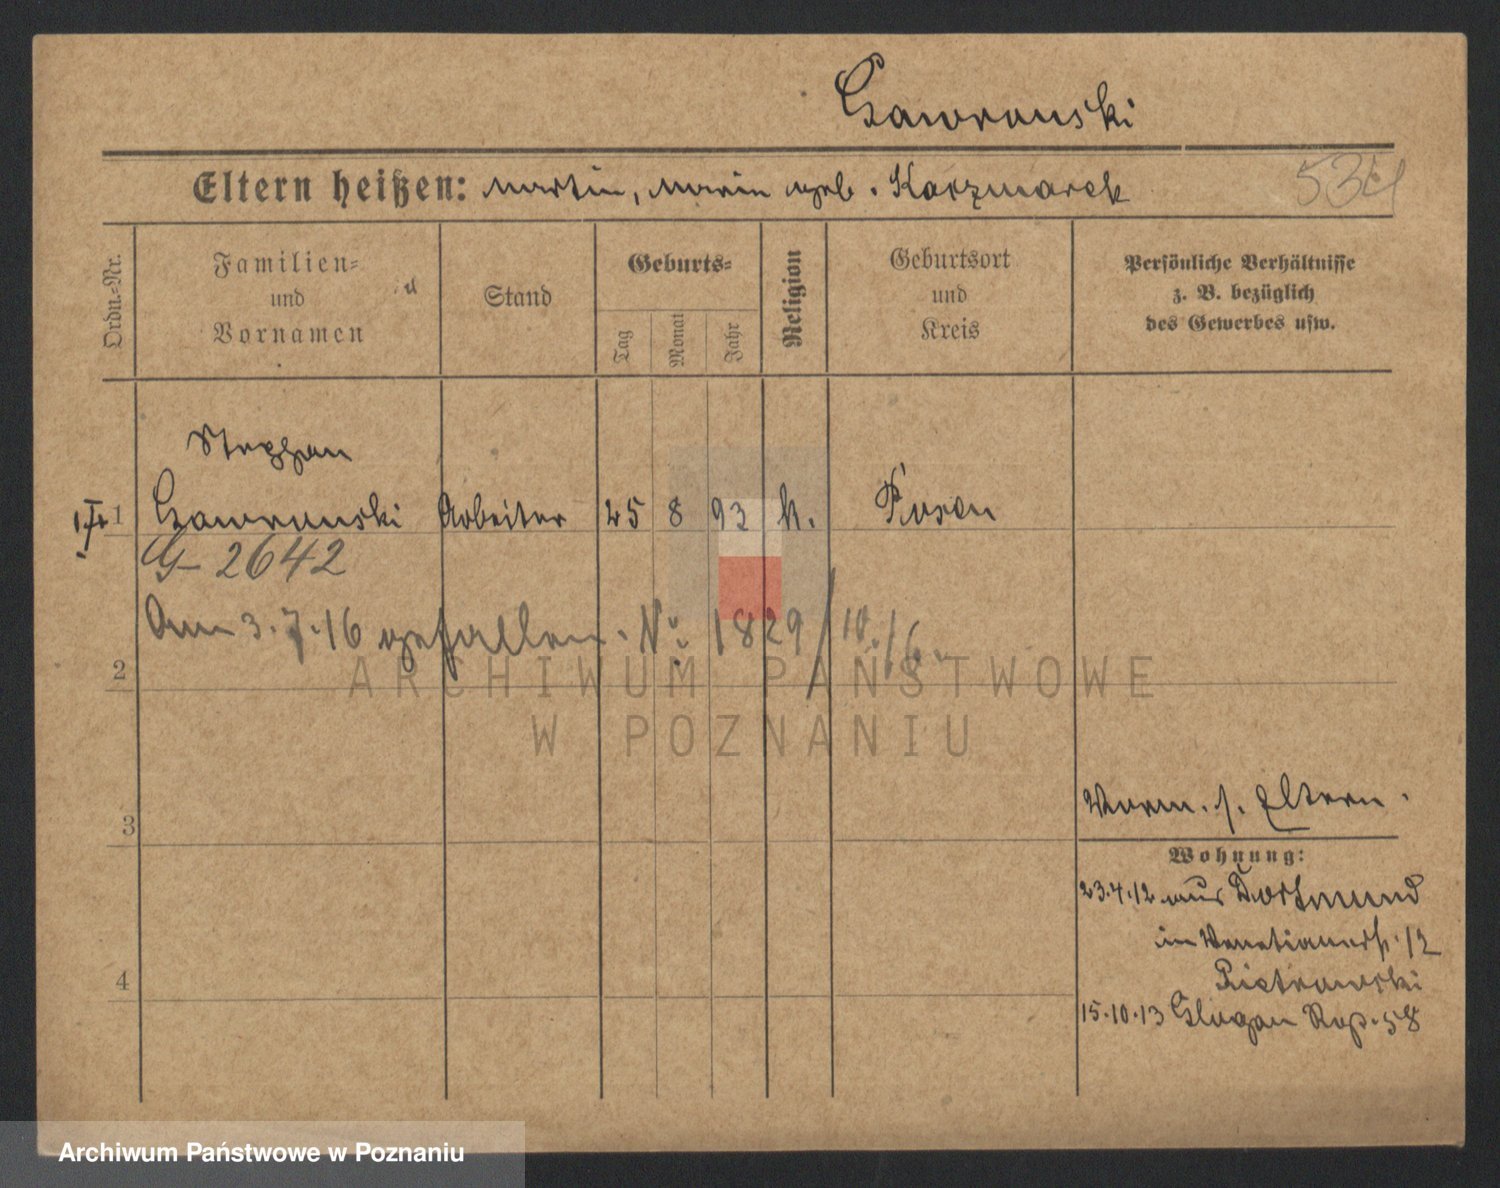 Gawronski
Eltern heißen: Martin, Marie geb. Kaczmarek
Ordn.-Nr.
Familien-
und
Vornamen
Stand
Geburts-
Tag
Monat
Jahr
Religion
Geburtsort
und
Kreis
Persönliche Verhältnisse
z. B. bezüglich
des Gewerbes usw.
Stephan
1 Gawronski Arbeiter 25 8 93 k. Posen
G 2642
Am 3.7.16 gefallen. No. 1829/10.16.
2
3
4
Vorm. s. Eltern.
Wohnung:
23.4.12 aus Dortmund
in Venetianerstr. 12
Pietrowski
15.10.13 Glogau Rgt. 58
ARCHIWUM PAŃSTWOWE
W POZNANIU
Archiwum Państwowe w Poznaniu